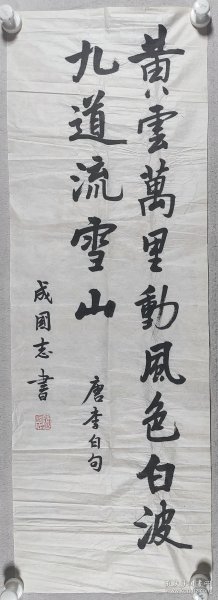 黄雲萬里動風色白波
九道流雪山
唐李白句
成國志書